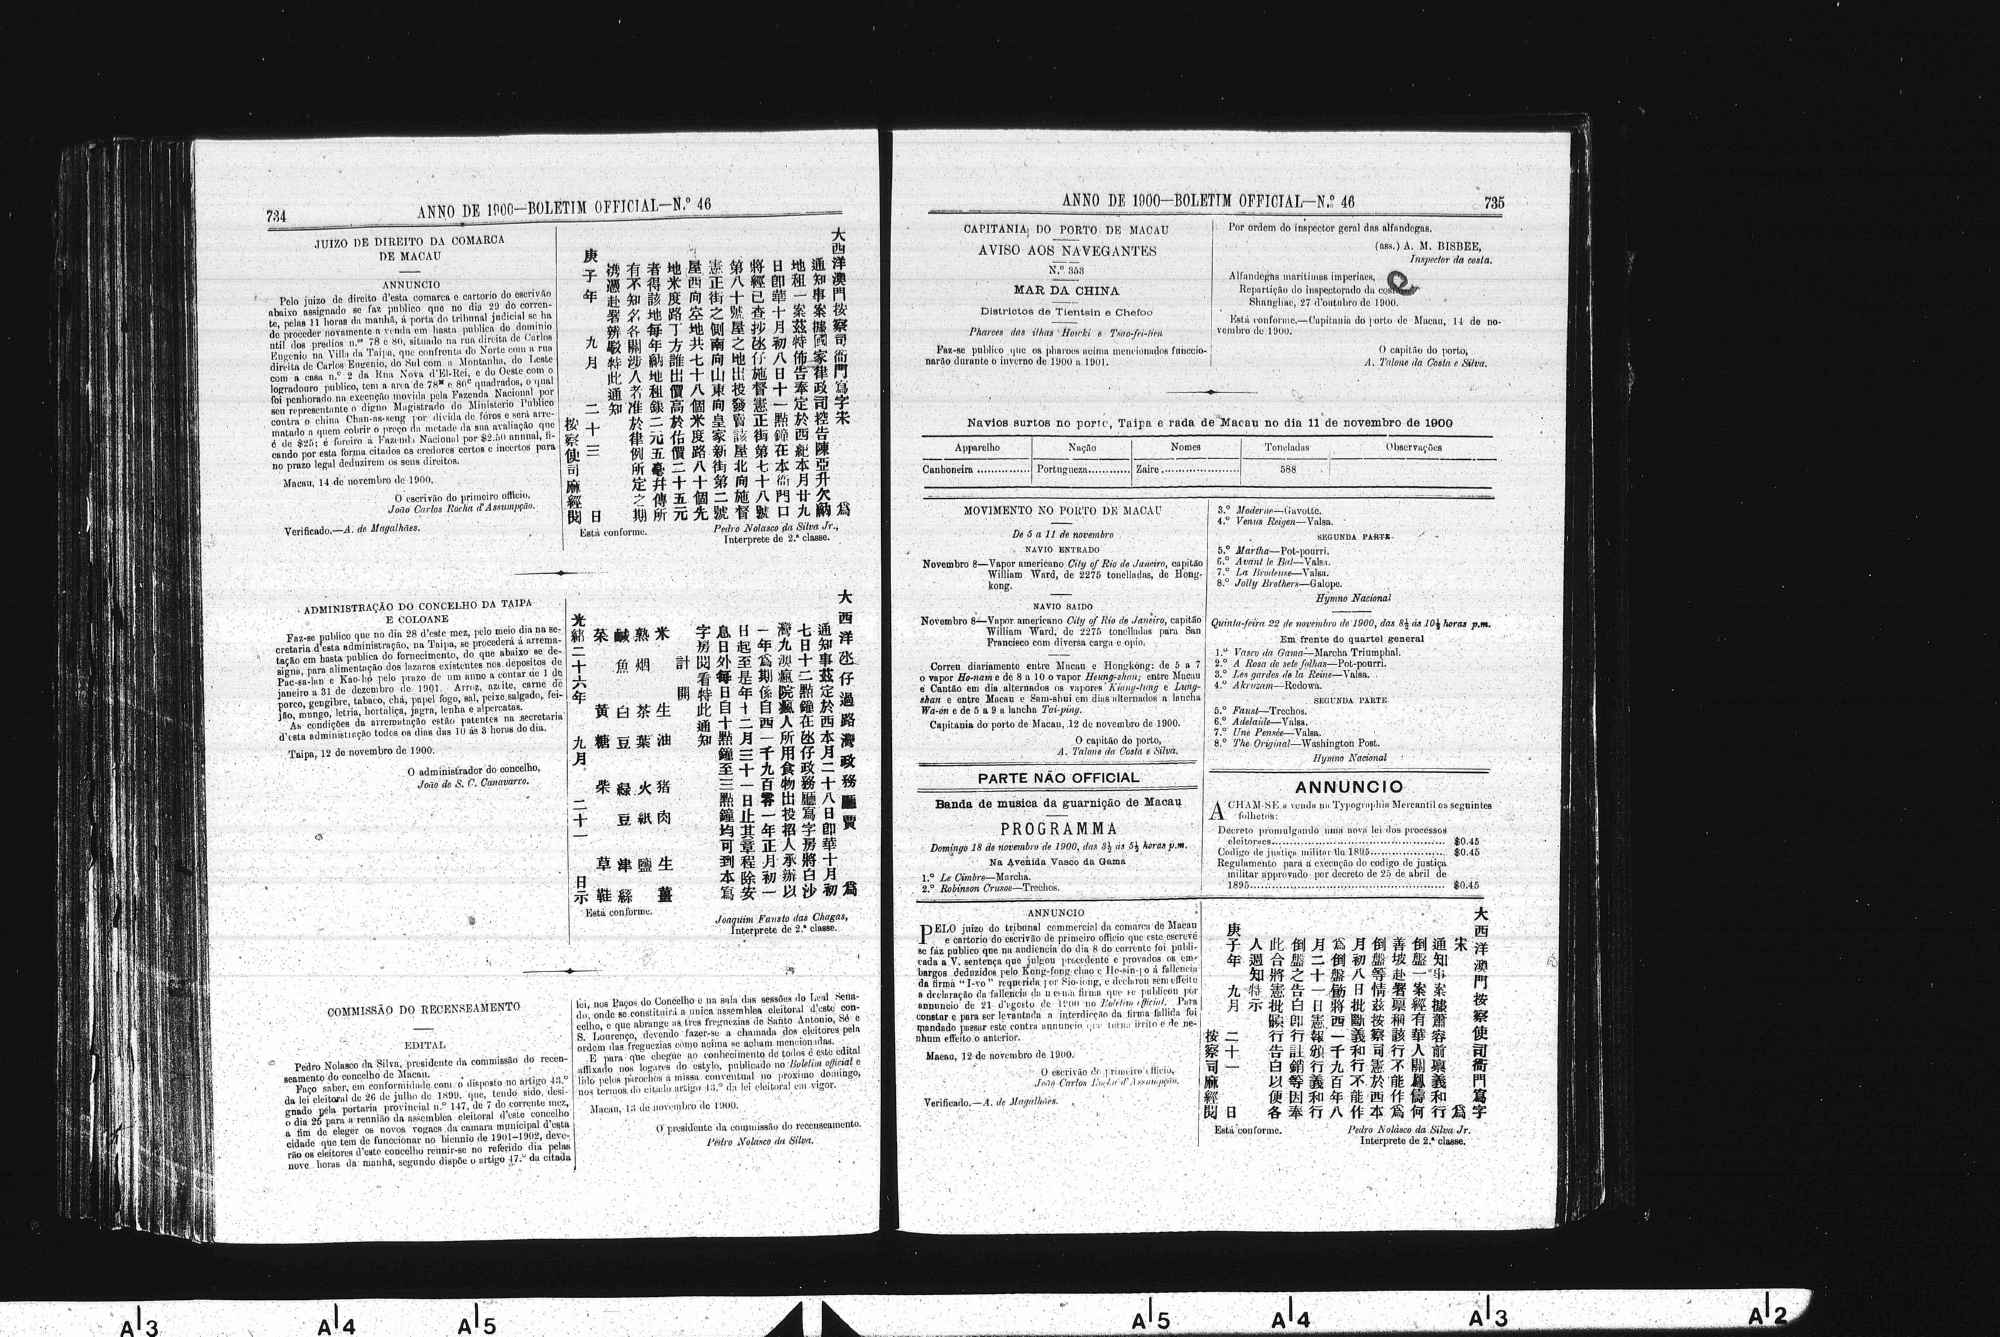 734
ANNO DE 1900—BOLETIM OFFICIAL—N.º 46
JUIZO DE DIREITO DA COMARCA
DE MACAU
ANNUNCIO
Pelo juizo de direito d'esta comarca e cartorio do escrivão
abaixo assignado se faz publico que no dia 29 do corren-
te, pelas 11 horas da manhã, á porta do tribunal judicial se ha
de proceder novamente a venda em hasta publica do dominio
util dos predios n.ºs 78 e 80, situado na rua direita de Carlos
Eugenio na Villa da Taipa, que confronta do Norte com a rua
direita de Carlos Eugenio, do Sul com a Montanha, do Leste
com a casa n.º 2 da Rua Nova d'El-Rei, e do Oeste com o
logradouro publico, tem a area de 78m e 80c quadrados, o qual
foi penhorado na execução movida pela Fazenda Nacional por
seu representante o digno Magistrado do Ministerio Publico
contra o china Chan-as-seng por divida de fóros e será arre-
matado a quem cobrir o preço da metade da sua avaliação que
é de $25; é foreiro a Fazenda Nacional por $2.50 annual, fi-
cando por esta forma citados os credores certos e incertos para
no prazo legal deduzirem os seus direitos.
Macau, 14 de novembro de 1900.
O escrivão do primeiro officio,
João Carlos Rocha d'Assumpção.
Verificado.—A. de Magalhães.
大西洋澳門按察司衙門寫字宋 爲
通知事案據國家律政司控告陳亞升欠納
地租一案茲特佈告奉定於西紀本月廿九
日卽華十月初八日十一點鐘在本衙門口
將經已查抄氹仔施督憲正街第七十八號
第八十號屋之地出投發賣該屋北向施督
憲正街之側南向山東向皇家新街第二號
屋西向空地共七十八個米度路八十個先
地米度路丁方誰出價高於佑價二十五元
者得該地每年納地租銀二元五毫幷傳所
有不知名各關涉人者准於律例所定之期
携憑赴署辨駁特此通知
庚子年 九月 二十三 日
按察使司麻經閱
Está conforme.
Pedro Nolasco da Silva Jr.,
Interprete de 2.ª classe.
ADMINISTRAÇÃO DO CONCELHO DA TAIPA
E COLOANE
Faz-se publico que no dia 28 d'este mez, pelo meio dia na se-
cretaria d'esta administração, na Taipa, se procederá á arrema-
tação em hasta publica do fornecimento, do que abaixo se de-
signa, para alimentação dos lazaros existentes nos depositos de
Pac-sa-lan e Kao-hó pelo prazo de um anno a contar de 1 de
janeiro a 31 de dezembro de 1901. Arroz, azite, carne de
porco, gengibre, tabaco, chá, papel fogo, sal, peixe salgado, fei-
jão, mungo, letria, hortaliça, jagra, lenha e alpercatas.
As condições da arrematação estão patentes na secretaria
d'esta administração todos os dias das 10 ás 3 horas do dia.
Taipa, 12 de novembro de 1900.
O administrador do concelho,
João de S. C. Canavarro.
大西洋氹仔過路灣政務廳賈 爲
通知事茲定於西本月二十八日卽華十月初
七日十二點鐘在氹仔政務廳寫字房將白沙
灣九澳瘋院瘋人所用食物出投招人承辦以
一年爲期係自西一千九百零一年正月初一
日起至是年十二月三十一日止其章程除安
息日外每日自十點鐘至三點鐘均可到本寫
字房閱看特此通知
計開
米 生油 猪肉 生薑
熟烟 茶葉 火紙 鹽
鹹魚 白豆 綠豆 津絲
菜 黃糖 柴 草鞋
光緒二十六年 九月 二十一 日示
Está conforme.
Joaquim Fausto das Chagas,
Interprete de 2.ª classe.
COMMISSÃO DO RECENSEAMENTO
EDITAL
Pedro Nolasco da Silva, presidente da commissão do recen-
seamento do concelho de Macau.
Faço saber, em conformidade com o disposto no artigo 43.º
da lei eleitoral de 26 de julho de 1899, que, tendo sido, desi-
gnado pela portaria provincial n.º 147, de 7 do corrente mez,
o dia 25 para a reunião da assemblea eleitoral d'este concelho
a fim de eleger os novos vogaes da camara municipal d'esta
cidade que tem de funccionar no biennio de 1901-1902, deve-
rão os eleitores d'este concelho reunir-se no referido dia pelas
nove horas da manhã, segundo dispõe o artigo 47.º da citada
lei, nos Paços do Concelho e na sala das sessões do Leal Sena-
do, onde se constituirá a unica assemblea eleitoral d'este con-
celho, e que abrange as tres freguezias de Santo Antonio, Sé e
S. Lourenço, devendo fazer-se a chamada dos eleitores pela
ordem das freguezias como acima se acham mencionadas.
E para que chegue ao conhecimento de todos é este edital
affixado nos logares do estylo, publicado no Boletim official e
lido pelos parochos á missa conventual no proximo domingo,
nos termos do citado artigo 43.º da lei eleitoral em vigor.
Macau, 13 de novembro de 1900.
O presidente da commissão do recenseamento.
Pedro Nolasco da Silva.
ANNO DE 1900—BOLETIM OFFICIAL—N.º 46
735
CAPITANIA DO PORTO DE MACAU
AVISO AOS NAVEGANTES
N.º 353
MAR DA CHINA
Districtos de Tientsin e Chefoo
Pharoes das ilhas Howki e Tsao-fei-tien
Faz-se publico que os pharoes acima mencionados funccio-
narão durante o inverno de 1900 a 1901.
Por ordem do inspector geral das alfandegas.
(ass.) A. M. BISBEE,
Inspector da costa.
Alfandegas maritimas imperiaes,
Repartição do inspectorado da
Shanghae, 27 d'outubro de 1900.
Está conforme.—Capitania do porto de Macau, 14 de no-
vembro de 1900.
O capitão do porto,
A. Talone da Costa e Silva.
Navios surtos no porto, Taipa e rada de Macau no dia 11 de novembro de 1900
Apparelho Nação Nomes Toneladas Observações
Canhoneira ............... Portugueza............ Zaire ...................... 588
MOVIMENTO NO PORTO DE MACAU
De 5 a 11 de novembro
NAVIO ENTRADO
Novembro 8—Vapor americano City of Rio de Janeiro, capitão
William Ward, de 2275 tonelladas, de Hong-
kong.
NAVIO SAIDO
Novembro 8—Vapor americano City of Rio de Janeiro, capitão
William Ward, de 2275 tonelladas para San
Francisco com diversa carga e opio.
Correu diariamento entre Macau e Hongkong: de 5 a 7
o vapor Ho-nam e de 8 a 10 o vapor Heung-shan; entre Macau
e Cantão em dia alternados os vapores Kiang-tung e Lung-
shan e entre Macau e Sam-shui em dias alternados a lancha
Wa-on e de 5 a 9 a lancha Tai-ping.
Capitania do porto de Macau, 12 de novembro de 1900.
O capitão do porto,
A. Talone da Costa e Silva.
PARTE NÃO OFFICIAL
Banda de musica da guarnição de Macau
PROGRAMMA
Domingo 18 de novembro de 1900, das 3½ ás 5½ horas p.m.
Na Avenida Vasco da Gama
1.º Le Cimbre—Marcha.
2.º Robinson Crusoe—Trechos.
3.º Moderne—Gavotte.
4.º Venus Reigen—Valsa.
SEGUNDA PARTE
5.º Martha—Pot-pourri.
6.º Avant le Bal—Valsa.
7.º La Brodeuse—Valsa.
8.º Jolly Brothers—Galope.
Hymno Nacional
Quinta-feira 22 de novembro de 1900, das 8½ ás 10½ horas p.m.
Em frente do quartel general
1.º Vasco da Gama—Marcha Triumphal.
2.º A Rosa de sete folhas—Pot-pourri.
3.º Les gardes de la Reine—Valsa.
4.º Akruzam—Redowa.
SEGUNDA PARTE
5.º Faust—Trechos.
6.º Adelaide—Valsa.
7.º Une Pensée—Valsa.
8.º The Original—Washington Post.
Hymno Nacional
ANNUNCIO
ACHAM-SE a venda na Typographia Mercantil os seguintes
folhetos:
Decreto promulgando uma nova lei dos processos
eleitores.................................................. $0.45
Codigo de justiça militar de 1895...................... $0.45
Regulamento para a execução do codigo de justiça
militar approvado por decreto de 25 de abril de
1895........................................................ $0.45
ANNUNCIO
PELO juizo do tribunal commercial da comarca de Macau
e cartorio do escrivão de primeiro officio que este escreve
se faz publico que na audiencia do dia 8 do corrente foi publi-
cada a V. sentença que julgou procedente e provados os em-
bargos deduzidos pelo Kong-fong-chao e Ho-sin-po á fallencia
da firma "I-vo" requerida por Sio-iong, e declarou sem effeito
a declaração da fallencia da mesma firma que se publicou por
annuncio de 21 d'agosto de 1900 no Boletim official. Para
constar e para ser levantada a interdicção da firma fallida foi
mandado passar este contra annuncio que torna irrito e de ne-
nhum effeito o anterior.
Macau, 12 de novembro de 1900.
O escrivão do primeiro officio,
João Carlos Rocha d'Assumpção.
Verificado.—A. de Magalhães.
大西洋澳門按察使司衙門寫字
宋 爲
通知事案據蕭容前稟義和行
倒盤一案經有華人關鳳儔何
善坡赴署稟稱該行不能作爲
倒盤等情茲按察司憲於西本
月初八日批斷義和行不能作
爲倒盤勷將西一千九百年八
月二十一日憲報頒行義和行
倒盤之告白卽行註銷等因奉
此合將憲批頒行告白以便各
人週知特示
庚子年 九月 二十一 日
按察司麻經閱
Está conforme.
Pedro Nolasco da Silva Jr.
Interprete de 2.ª classe.
A|3 A|4 A|5 A|5 A|4 A|3 A|2